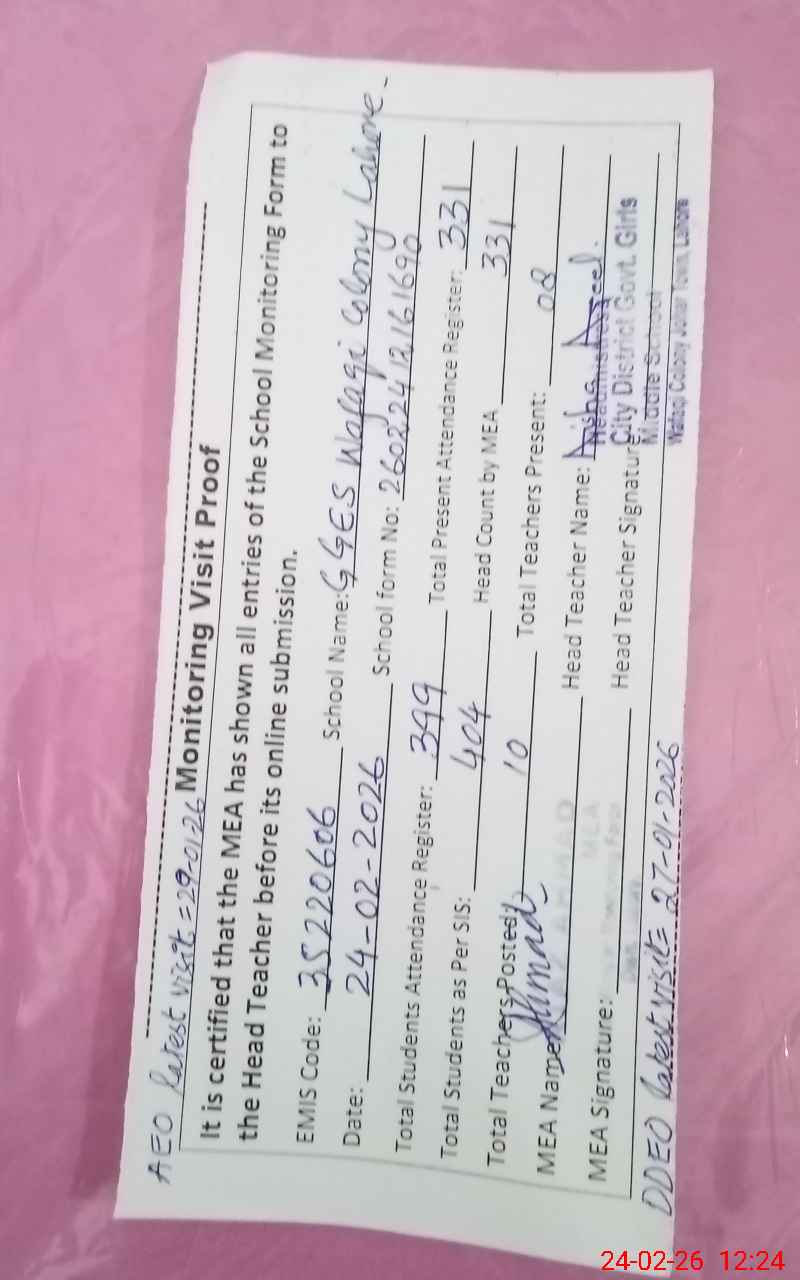 AEO latest visit = 29-01-26 Monitoring Visit Proof
It is certified that the MEA has shown all entries of the School Monitoring Form to
the Head Teacher before its online submission.
EMIS Code: 35220606 School Name: GGES Wafaqi Colony Lahore.
Date: 24-02-2026 School form No: 26022412161690
Total Students Attendance Register: 399 Total Present Attendance Register: 331
Total Students as Per SIS: 404 Head Count by MEA 331
Total Teachers Posted: 10 Total Teachers Present: 08
MEA Name: Ahmad Head Teacher Name: Aisha
Headmistress
MEA Signature: Head Teacher Signature
City District Govt. Girls
Middle School
Wafaqi Colony Johar Town, Lahore
AHMAD
MEA
DDEO latest visit = 27-01-2026
24-02-26 12:24